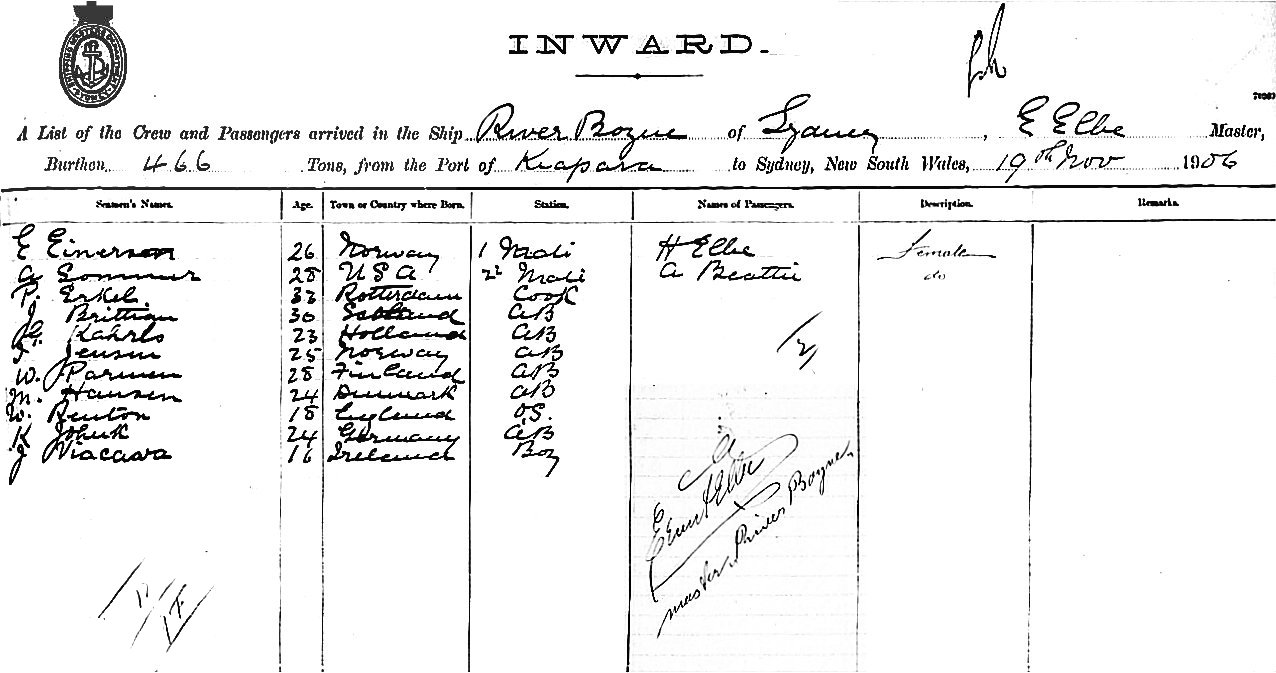 INWARD.
A List of the Crew and Passengers arrived in the Ship River Boyne of Sydney, E Elbe Master,
Burthen 466 Tons, from the Port of Kiapara to Sydney, New South Wales, 19th Nov 1906
Seamen's Names. Age. Town or Country where Born. Station. Names of Passengers. Description. Remarks.
E Einerson 26 Norway 1 Mate H Elbe Female
A Sommer 28 USA 2d Mate A Beattie do
P. Erkel. 33 Rotterdam Cook
J. Brittian 30 Scotland AB
Kahrls 23 Holland AB
Jensen 25 Norway AB
W. Parmen 28 Finland AB
M. Hansen 24 Denmark AB
W. Renton 18 England OS.
K 24 Germany AB
J Viacava 16 Ireland Boy
2
Elbe
master River Boyne